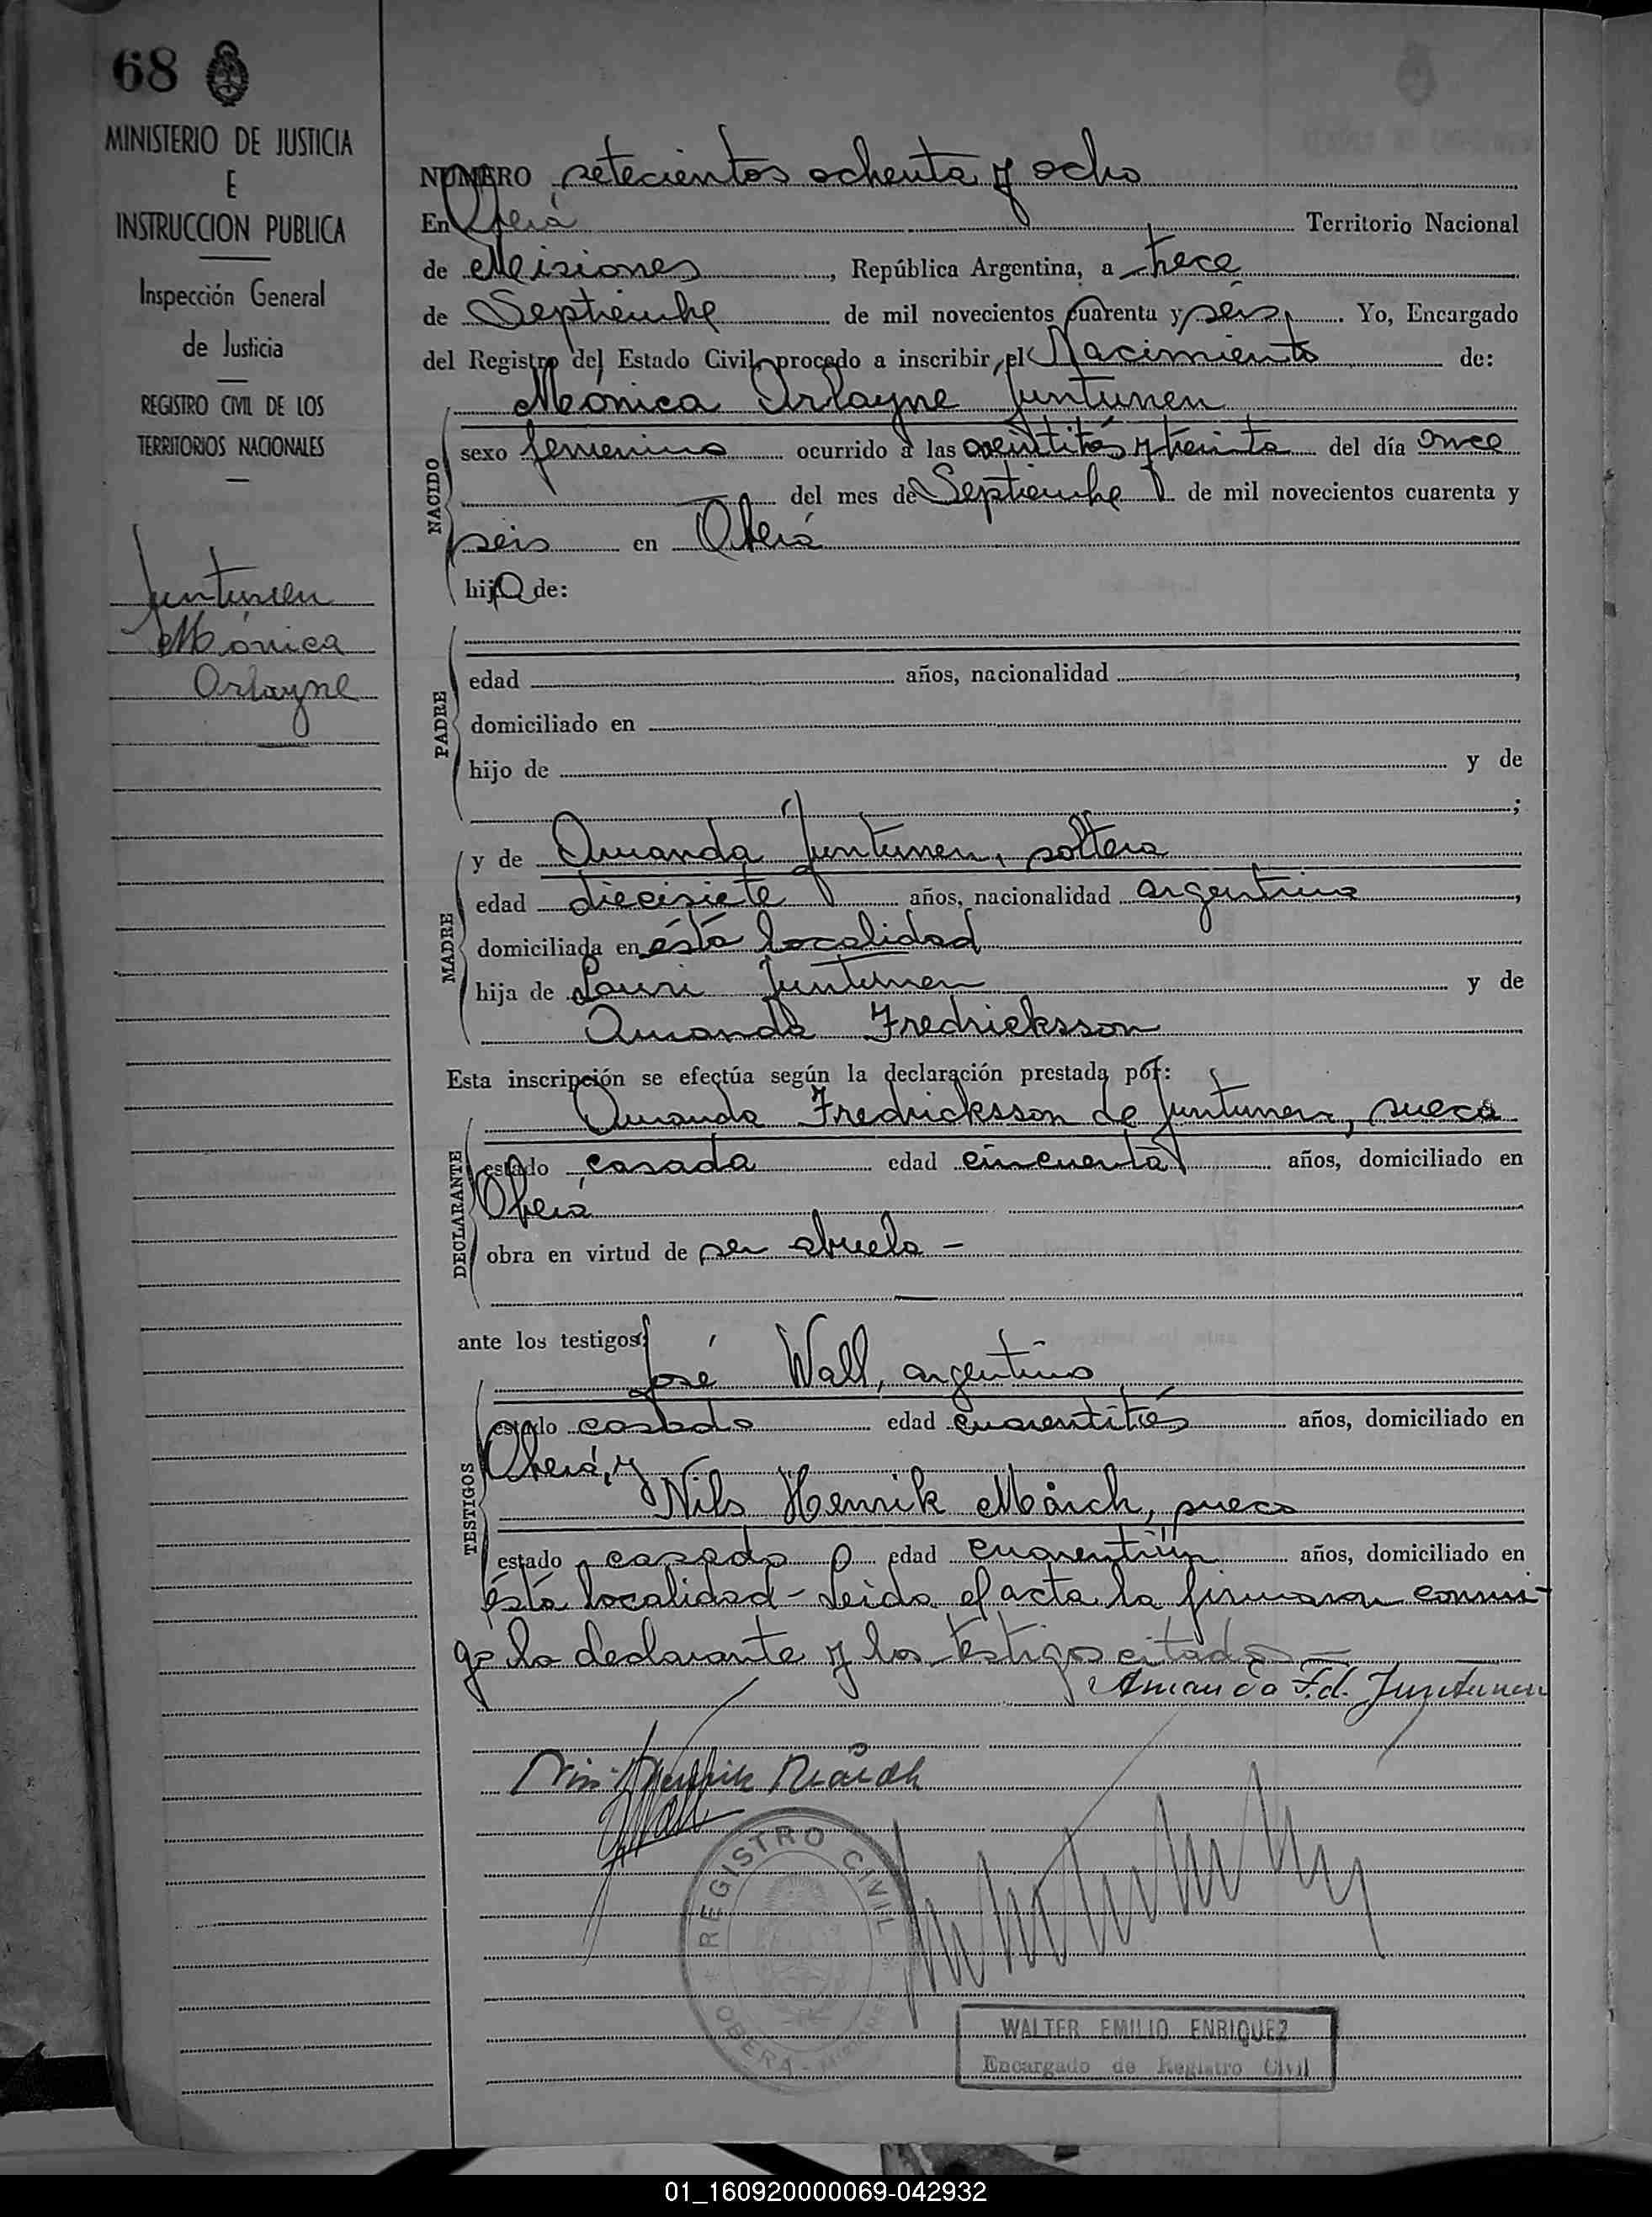 68
MINISTERIO DE JUSTICIA
E
INSTRUCCION PUBLICA
Inspección General
de Justicia
REGISTRO CIVIL DE LOS
TERRITORIOS NACIONALES
Juntunen
Mónica
Arlayne
NUMERO setecientos ochenta y ocho
En Oberá Territorio Nacional
de Misiones, República Argentina, a trece
de Septiembre de mil novecientos cuarenta y seis. Yo, Encargado
del Registro del Estado Civil, procedo a inscribir el Nacimiento de:
Mónica Arlayne Juntunen
NACIDO
sexo femenino ocurrido a las veintitrés y treinta del día once
del mes de Septiembre de mil novecientos cuarenta y
seis en Oberá
hija de:
PADRE
edad años, nacionalidad ,
domiciliado en
hijo de y de
;
MADRE
y de Amanda Juntunen, soltera
edad diecisiete años, nacionalidad argentina,
domiciliada en ésta localidad
hija de Lauri Juntunen y de
Amanda Fredricksson
Esta inscripción se efectúa según la declaración prestada por:
DECLARANTE
Amanda Fredricksson de Juntunen, sueca
estado casada edad cincuenta años, domiciliado en
Oberá
obra en virtud de ser abuela -
ante los testigos:
TESTIGOS
José Wall, argentino
estado casado edad cuarentitrés años, domiciliado en
Oberá, y
Nils Henrik March, sueco
estado casado edad cuarentiún años, domiciliado en
ésta localidad - Leida el acta la firmaron conmi-
go la declarante y los testigos citados
Amanda F.d. Juntunen
Henrik
Wall
REGISTRO CIVIL
OBERA - MISIONES
WALTER EMILIO ENRIQUEZ
Encargado de Registro Civil
01_160920000069-042932